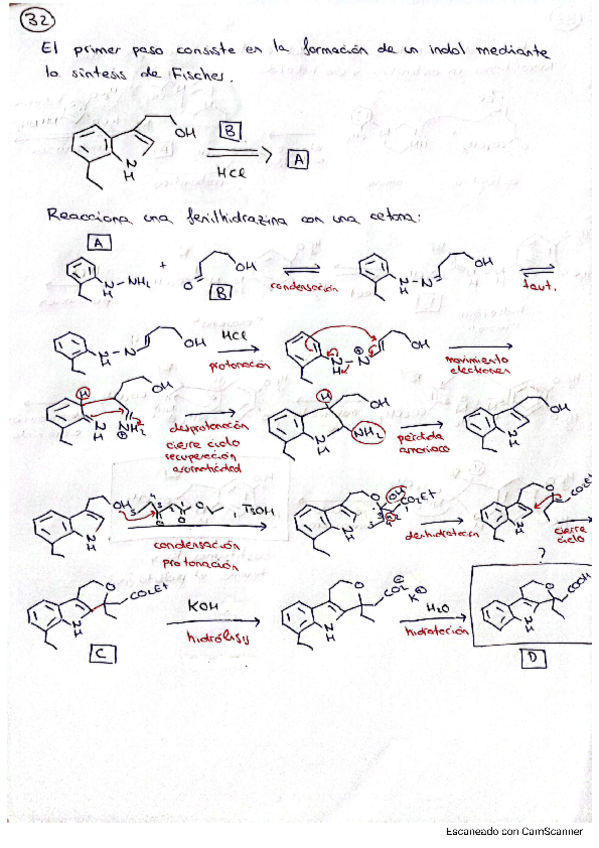 32
El primer paso consiste en la formación de un indol mediante
la síntesis de Fischer.
OH
B
N
H
HCl
A
Reacciona una fenilhidrazina con una cetona:
A
N-NH2
H
+
O
OH
B
condensación
N-N
H
OH
taut.
N-N
H
OH
HCl
protonación
N-N
H
OH
movimiento
electrones
H
OH
NH
NH2
desprotonación
cierre ciclo
recuperación
aromaticidad
H
OH
N
H
NH2
pérdida
amoniaco
OH
N
H
OH
N
H
O
O
O
, TsOH
condensación
protonación
O
OH
CO2Et
N
H
deshidratación
O
CO2Et
N
H
cierre
ciclo
?
O
CO2Et
N
H
C
KOH
hidrólisis
O
CO2
K
N
H
H2O
hidratación
O
COOH
N
H
D
Escaneado con CamScanner